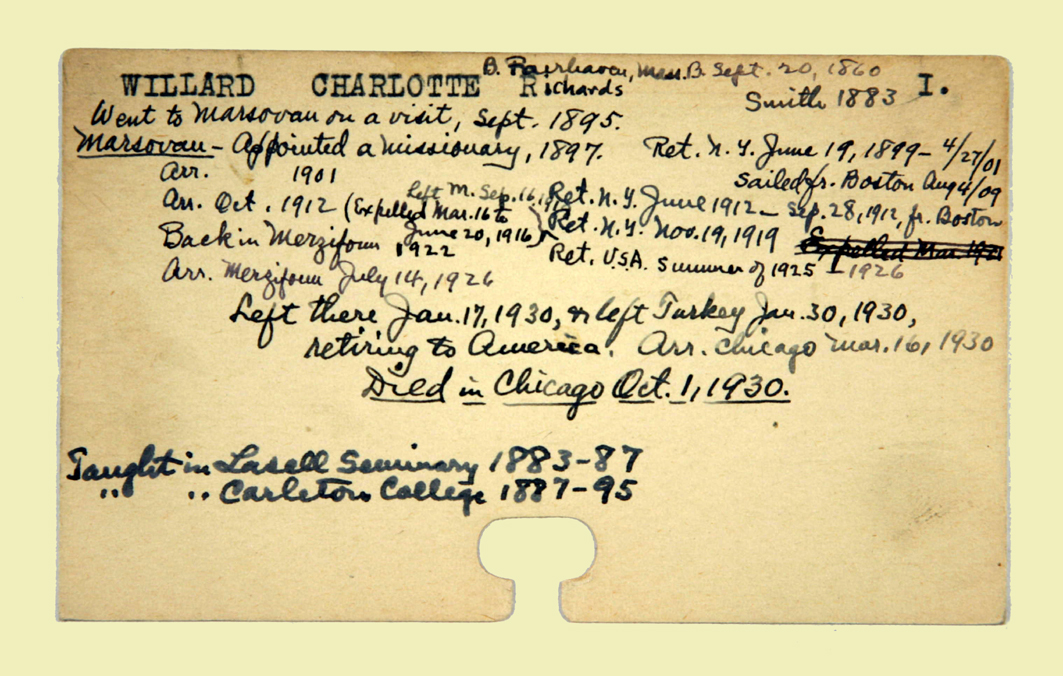 B. Fairhaven, Mass. B. Sept. 20, 1860
WILLARD CHARLOTTE Richards I.
Smith 1883
Went to Marsovan on a visit, Sept. 1895.
Marsovan - Appointed a missionary, 1897. Ret. N.Y. June 19, 1899 - 4/27/01
Arr. 1901 Sailed fr. Boston Aug 4/09
Left M. Sep. 16, Ret. N.Y. June 1912 - Sep. 28, 1912, fr. Boston
Arr. Oct. 1912 (Expelled Mar. 16 to Ret. N.Y. Nov. 19, 1919 Expelled Mar. 192
June 20, 1916)
Back in Merzifoun 1922 Ret. U.S.A. Summer of 1925 - 1926
Arr. Merzifoun July 14, 1926
Left there Jan. 17, 1930, & left Turkey Jan. 30, 1930,
retiring to America. Arr. Chicago Mar. 16, 1930
Died in Chicago Oct. 1, 1930.
Taught in Lasell Seminary 1883-87
" " Carleton College 1887-95